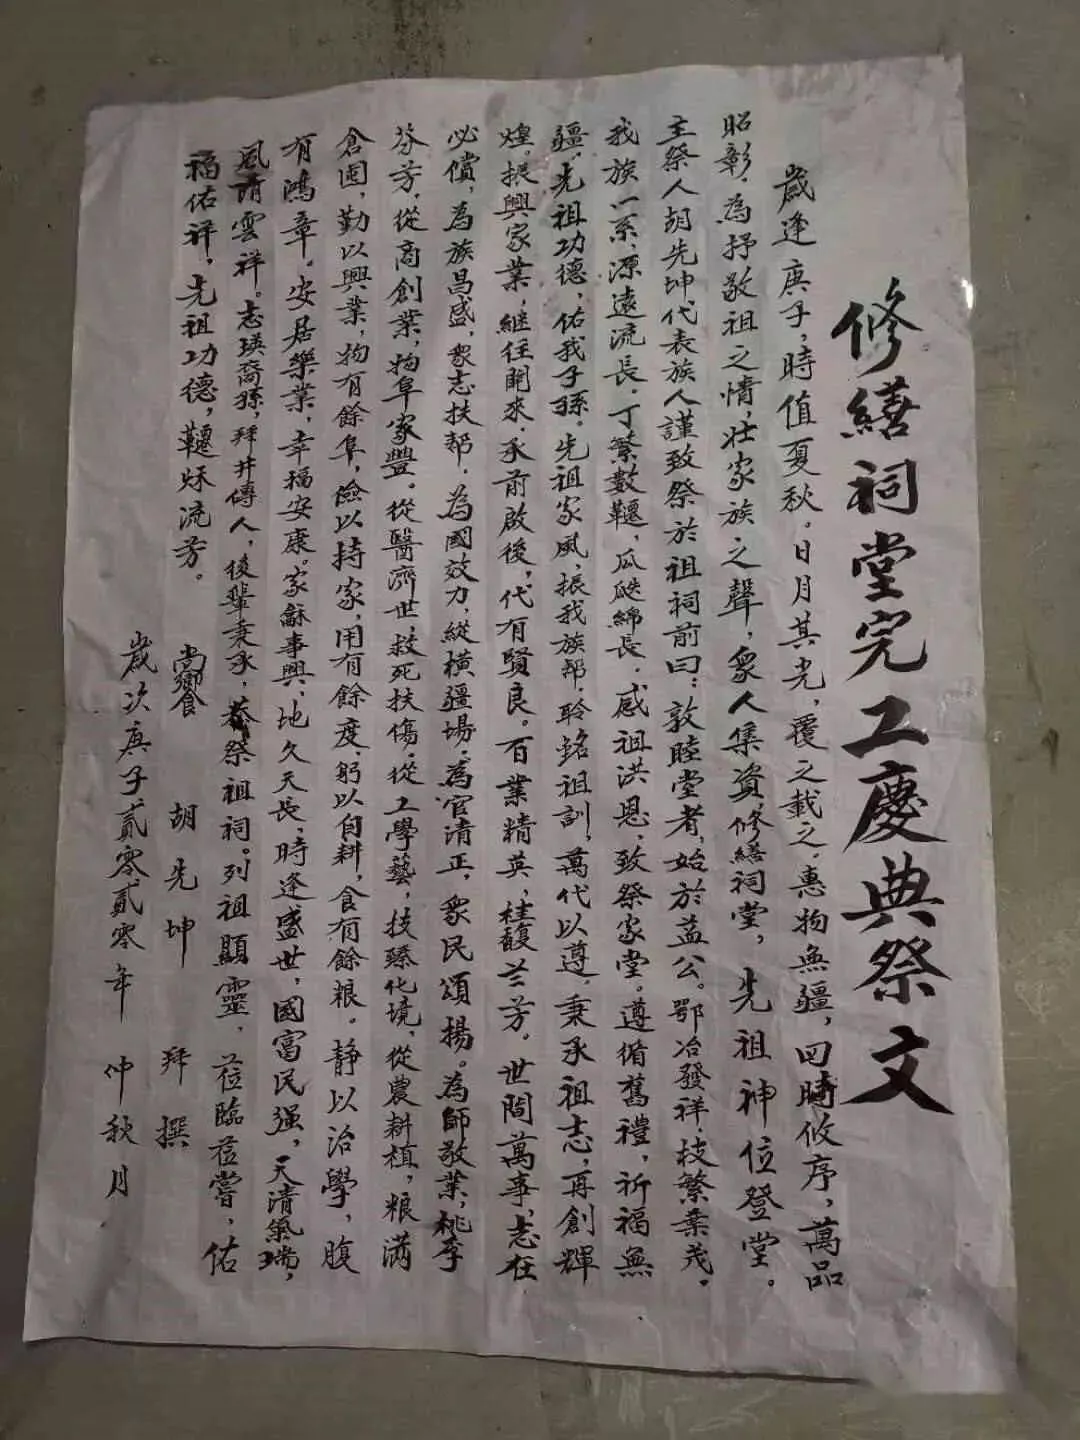 修繕祠堂完工慶典祭文
歲逢庚子，時值夏秋。日月其光，覆之載之，惠物無疆，四時攸序，萬品
昭彰，為抒敬祖之情，壯家族之聲，衆人集資修繕祠堂，先祖神位登堂。
主祭人胡先坤代表族人謹致祭於祖祠前曰：敦睦堂者，始於益公。鄂冶發祥，技繁葉茂。
我族一系，源遠流長，丁繁數韆，瓜瓞綿長，感祖洪恩，致祭家堂。遵循舊禮，祈福無
疆，先祖功德，佑我子孫。先祖家風，振我族邦，聆銘祖訓，萬代以遵，秉承祖志，再創輝
煌，振興家業，継往開來，承前啟後，代有賢良。百業精英，桂馥芸芳。世間萬事，志在
必償，為族昌盛，衆志扶幇，為國效力，縱橫疆場，為官清正，衆民頌揚。為師敬業，桃李
芬芳，從商創業，物阜家豐，從醫濟世，救死扶傷，從工學藝，技臻化境，從農耕植，粮满
倉囤，勤以興業，物有餘阜，儉以持家，用有餘度，躬以自耕，食有餘粮。静以治學，腹
有鴻章。安居樂業，幸福安康。家龢事興，地久天長，時逢盛世，國富民强，天清氣瑞，
風清雲祥。志瑛裔孫，拜井傳人，後輩秉承，恭祭祖祠。列祖顯靈，莅臨莅嘗，佑
福佑祥，先祖功德，韆秌流芳。
尚饗 胡先坤 拜撰
歲次庚子貳零貳零年 仲秋月